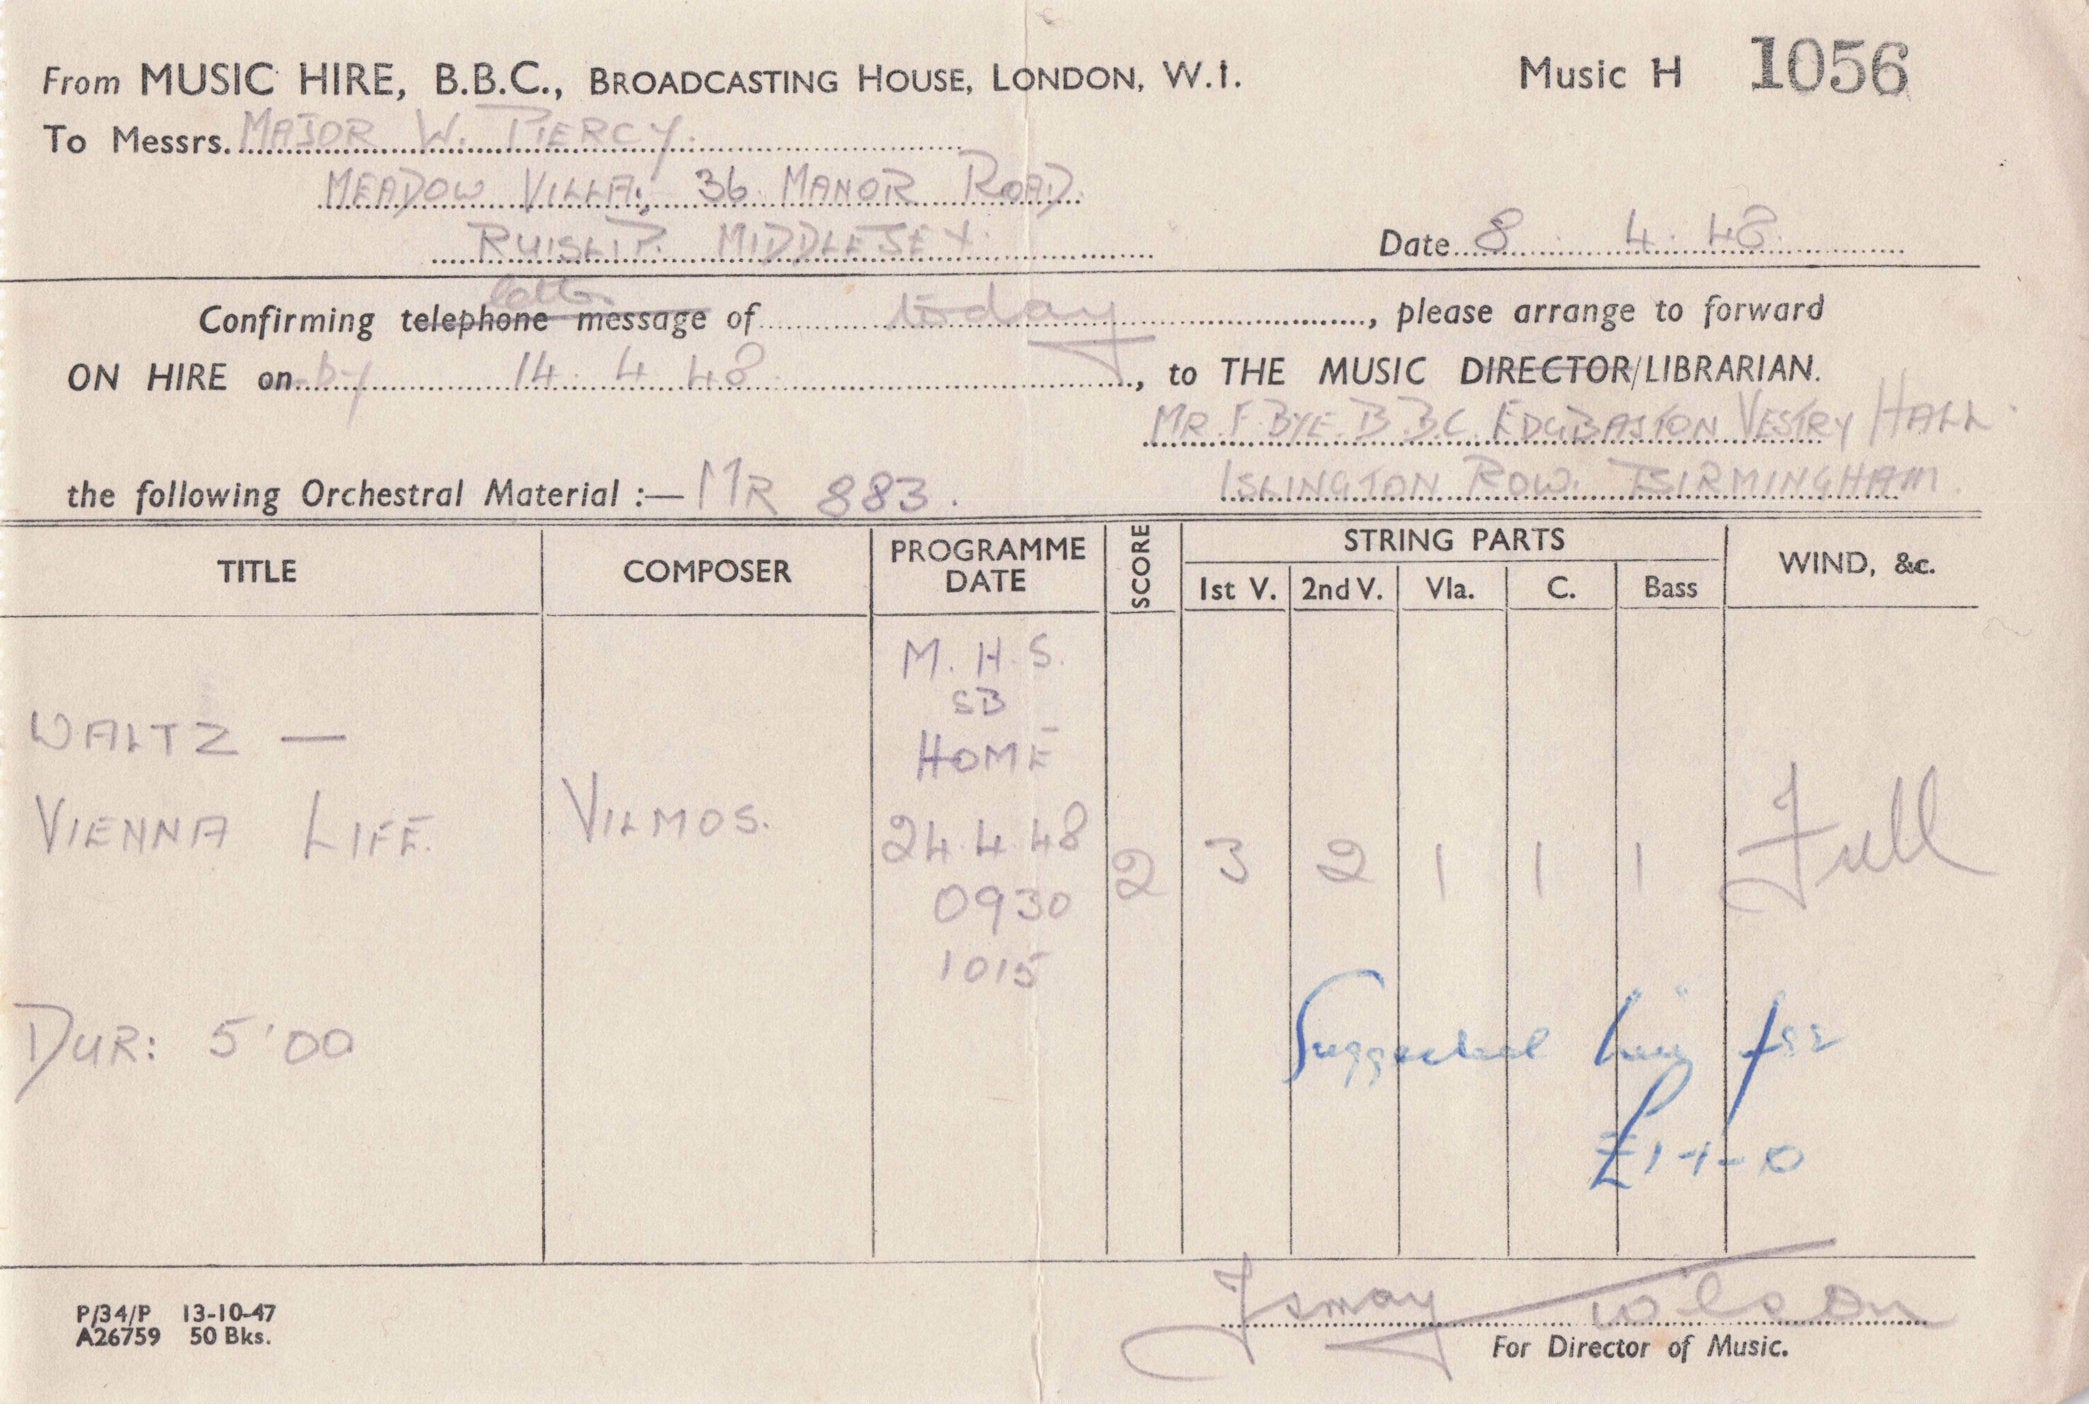 From MUSIC HIRE, B.B.C., BROADCASTING HOUSE, LONDON, W.1. Music H 1056
To Messrs. MAJOR W. PIERCY.
MEADOW VILLA, 36 MANOR ROAD.
RUISLIP. MIDDLESEX. Date 8. 4. 48.
letter
Confirming telephone message of today, please arrange to forward
ON HIRE on by 14. 4. 48., to THE MUSIC DIRECTOR/LIBRARIAN.
MR. F. BYE. B.B.C. EDGBASTON VESTRY HALL.
the following Orchestral Material :— MR 883. ISLINGTON ROW. BIRMINGHAM.
TITLE COMPOSER PROGRAMME DATE SCORE STRING PARTS WIND, &c.
1st V. 2nd V. Vla. C. Bass
M.H.S.
SB
WALTZ — HOME
VIENNA LIFE. VILMOS. 24.4.48 2 3 2 1 1 1 Full
0930
1015
DUR: 5'00 Suggested hire fee
£1-1-0
Ismay Wilson
P/34/P 13-10-47
A26759 50 Bks. For Director of Music.